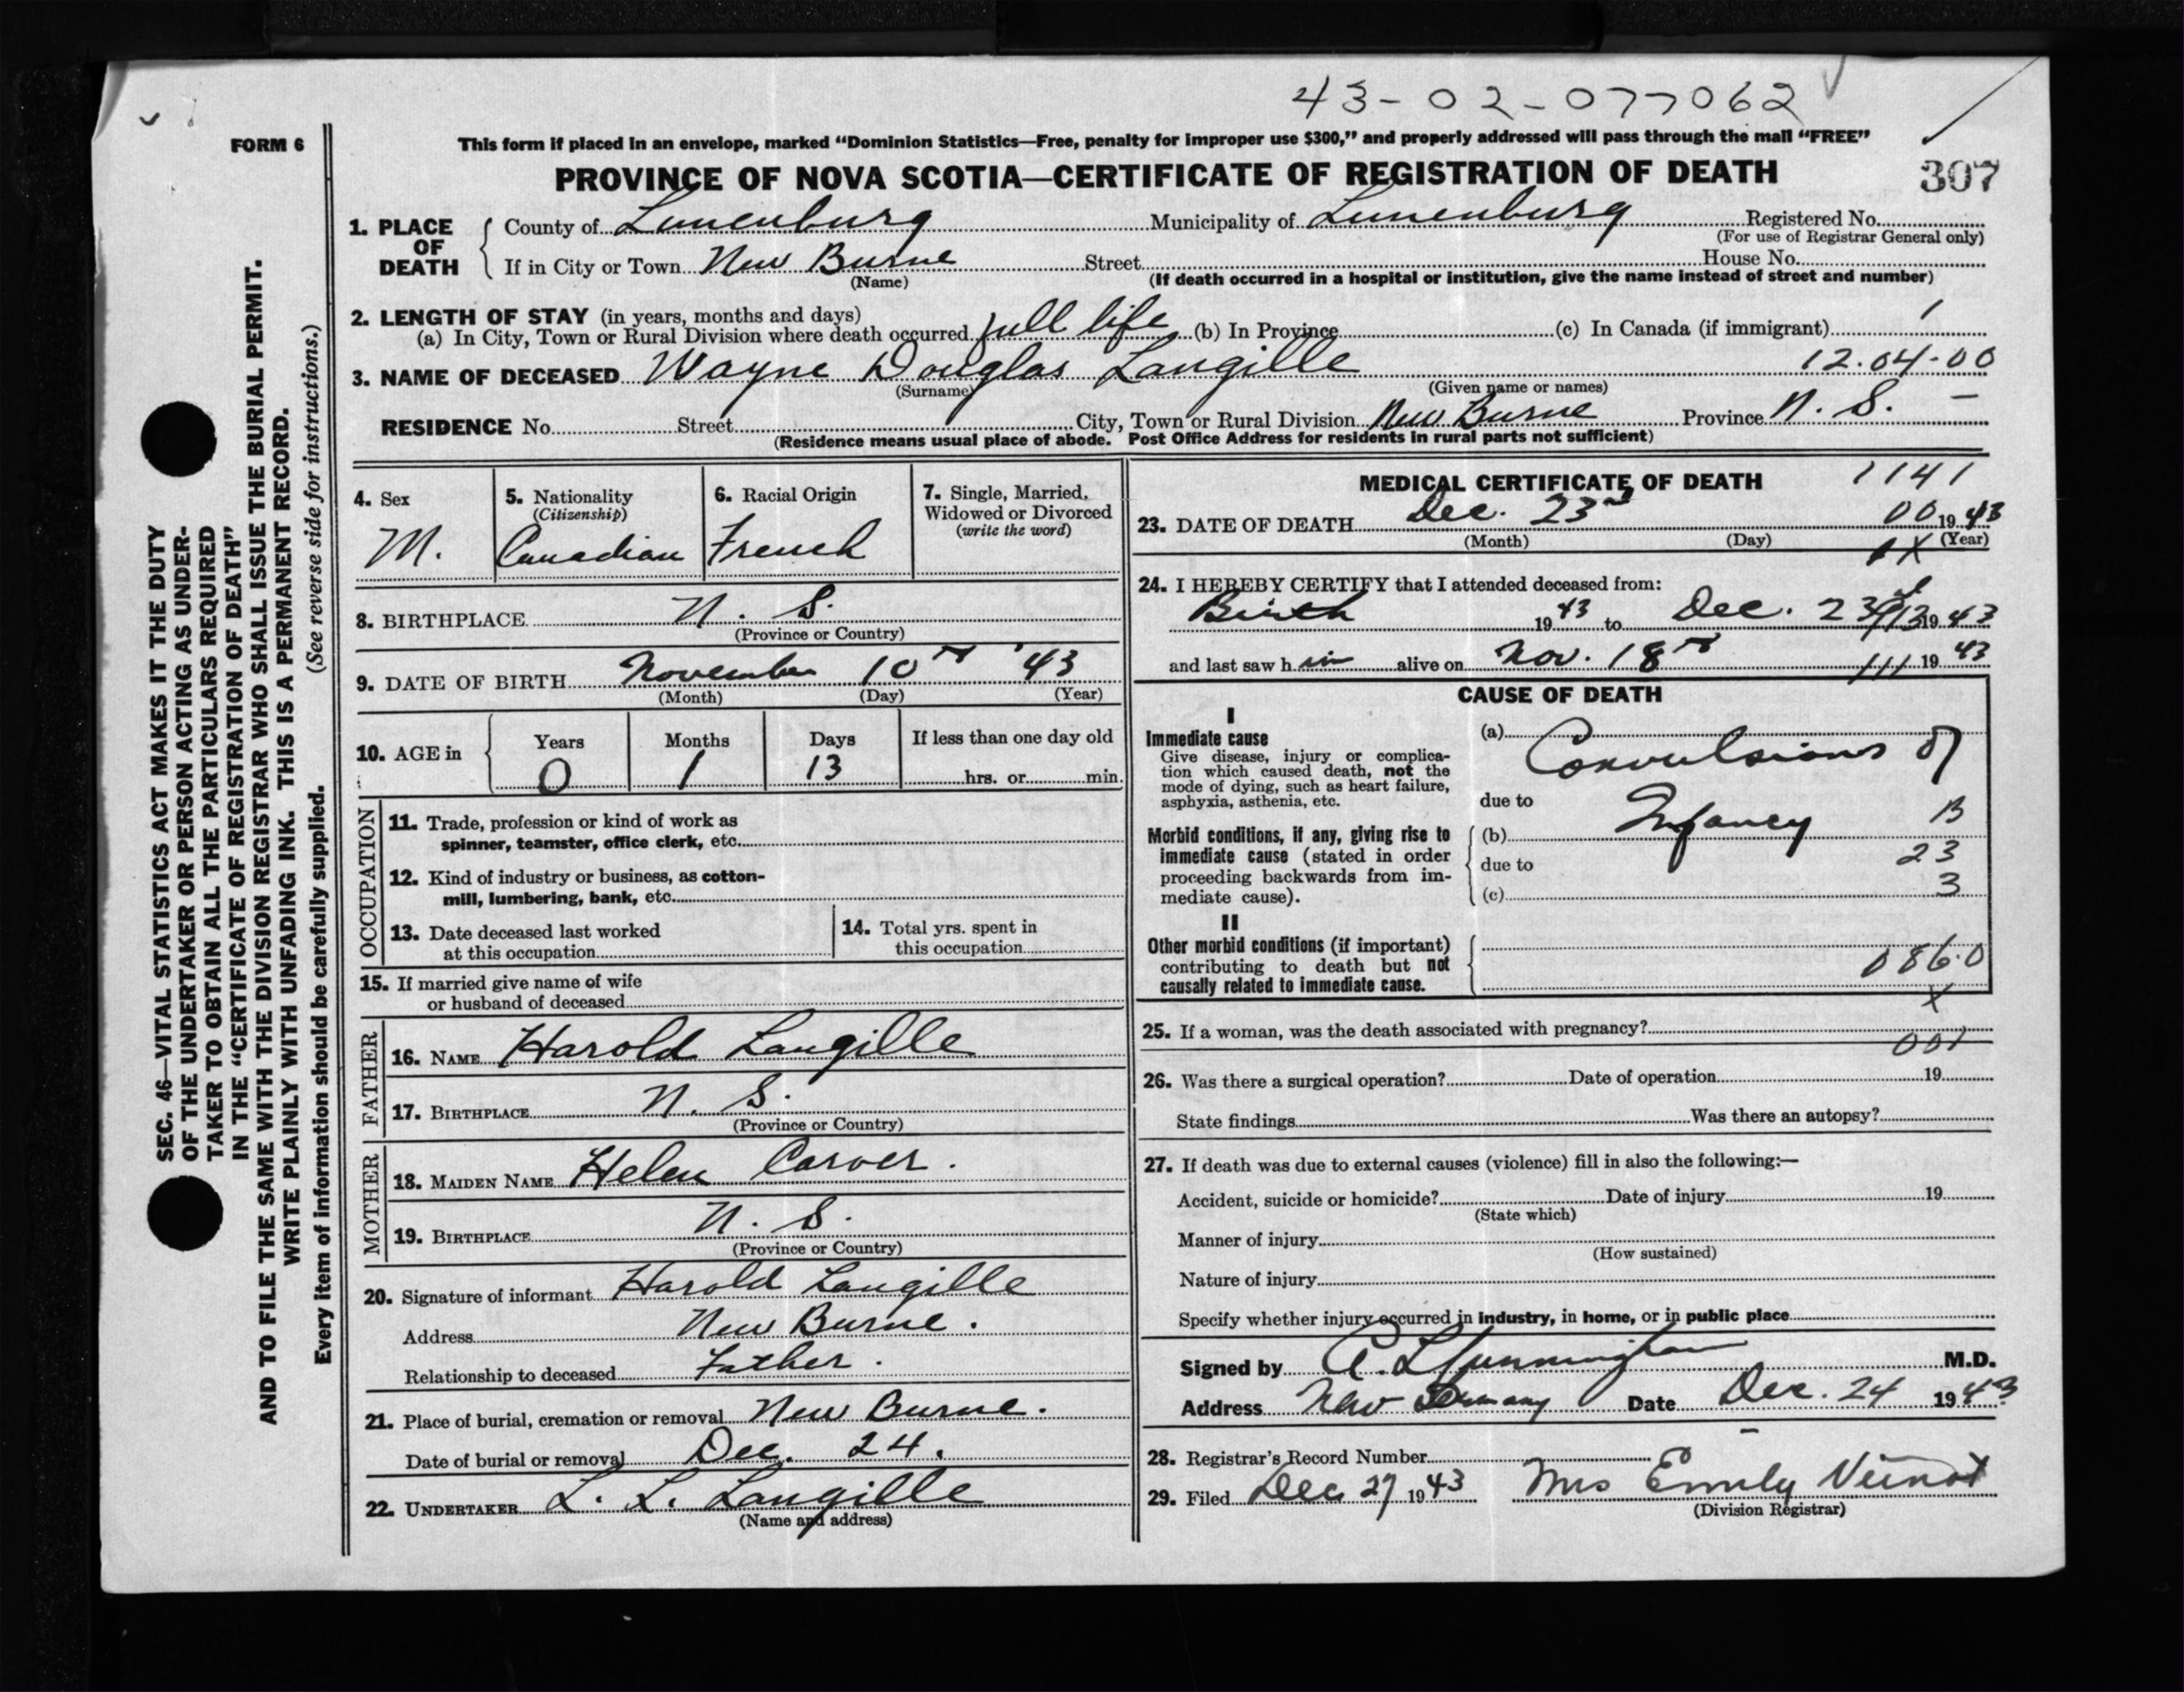 43-02-077062
FORM 6
This form if placed in an envelope, marked “Dominion Statistics—Free, penalty for improper use $300,” and properly addressed will pass through the mail “FREE”
PROVINCE OF NOVA SCOTIA—CERTIFICATE OF REGISTRATION OF DEATH 307
1. PLACE OF DEATH
County of Lunenburg Municipality of Lunenburg Registered No.
(For use of Registrar General only)
If in City or Town New Burne Street House No.
(Name) (If death occurred in a hospital or institution, give the name instead of street and number)
2. LENGTH OF STAY (in years, months and days)
(a) In City, Town or Rural Division where death occurred full life (b) In Province (c) In Canada (if immigrant)
3. NAME OF DECEASED Wayne Douglas Langille 12.04.00
(Surname) (Given name or names)
RESIDENCE No. Street City, Town or Rural Division New Burne Province N. S. –
(Residence means usual place of abode. Post Office Address for residents in rural parts not sufficient)
4. Sex
M.
5. Nationality
(Citizenship)
Canadian
6. Racial Origin
French
7. Single, Married, Widowed or Divorced
(write the word)
8. BIRTHPLACE N. S.
(Province or Country)
9. DATE OF BIRTH November 10th '43
(Month) (Day) (Year)
10. AGE in
Years Months Days If less than one day old
0 1 13 hrs. or min.
OCCUPATION
11. Trade, profession or kind of work as
spinner, teamster, office clerk, etc.
12. Kind of industry or business, as cotton-
mill, lumbering, bank, etc.
13. Date deceased last worked
at this occupation
14. Total yrs. spent in
this occupation
15. If married give name of wife
or husband of deceased
FATHER
16. NAME Harold Langille
17. BIRTHPLACE N. S.
(Province or Country)
MOTHER
18. MAIDEN NAME Helen Carver.
19. BIRTHPLACE N. S.
(Province or Country)
20. Signature of informant Harold Langille
Address New Burne.
Relationship to deceased Father.
21. Place of burial, cremation or removal New Burne.
Date of burial or removal Dec. 24.
22. UNDERTAKER L. L. Langille
(Name and address)
MEDICAL CERTIFICATE OF DEATH 1141
23. DATE OF DEATH Dec. 23rd 00 1943
(Month) (Day) (Year)
24. I HEREBY CERTIFY that I attended deceased from:
Birth 1943 to Dec. 23 1943
and last saw h im alive on Nov. 18th 111 1943
CAUSE OF DEATH
I
Immediate cause
Give disease, injury or complica-
tion which caused death, not the
mode of dying, such as heart failure,
asphyxia, asthenia, etc.
(a) Convulsions of
due to
Morbid conditions, if any, giving rise to
immediate cause (stated in order
proceeding backwards from im-
mediate cause).
(b) Infancy 13
due to 23
(c) 3
II
Other morbid conditions (if important)
contributing to death but not
causally related to immediate cause.
086.0
X
25. If a woman, was the death associated with pregnancy?
001
26. Was there a surgical operation? Date of operation 19
State findings Was there an autopsy?
27. If death was due to external causes (violence) fill in also the following:—
Accident, suicide or homicide? Date of injury 19
(State which)
Manner of injury
(How sustained)
Nature of injury
Specify whether injury occurred in industry, in home, or in public place
Signed by Cunningham M.D.
Address New Germany Date Dec. 24 1943
28. Registrar's Record Number
29. Filed Dec 27 1943 Mrs Emily Veinot
(Division Registrar)
SEC. 46—VITAL STATISTICS ACT MAKES IT THE DUTY
OF THE UNDERTAKER OR PERSON ACTING AS UNDER-
TAKER TO OBTAIN ALL THE PARTICULARS REQUIRED
IN THE “CERTIFICATE OF REGISTRATION OF DEATH”
AND TO FILE THE SAME WITH THE DIVISION REGISTRAR WHO SHALL ISSUE THE BURIAL PERMIT.
WRITE PLAINLY WITH UNFADING INK. THIS IS A PERMANENT RECORD.
Every item of information should be carefully supplied. (See reverse side for instructions.)